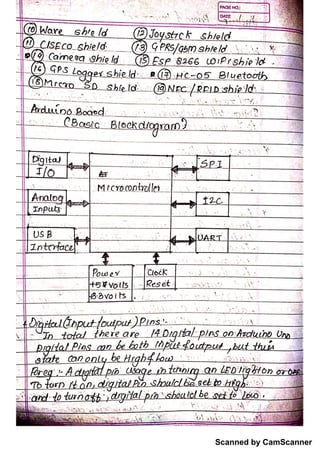 PAGE NO.:
DATE
⑩ Wave shield ⑫ Joystick shield
⑪ CISECO shield ⑬ GPRS/gsm shield
⑭ Camera shield ⑮ ESP 8266 WIFI shield
⑯ GPS Logger shield ⑰ HC-05 Bluetooth
⑱ Micro SD shield ⑲ NFC / RFID shield
Arduino Board
(Basic Block diagram)
Digital I/O
Analog Inputs
USB Interface
Microcontroller
SPI
I2C
UART
Power
+5 volts
3.3 volts
Clock
Reset
Digital (Input/output) Pins :-
In total there are 14 Digital pins on Arduino Uno
Digital Pins can be both input & output, but their
state can only be High & low
For eg :- A digital pin usage in turning an LED light on or off
To turn it on, digital Pin should be set to High
and to turn off, digital pin should be set to low.
Scanned by CamScanner